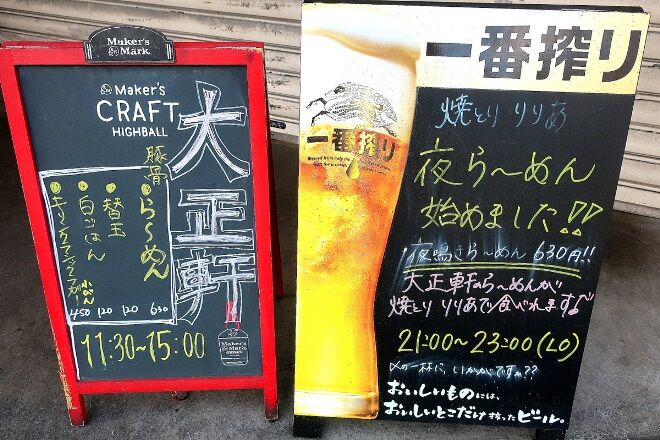 Maker's
Mark
Maker's
CRAFT
HIGHBALL
大正軒
豚骨
らーめん 630
替玉 120
白ごはん 120
小びん 450
11:30~15:00
Maker's
Mark
一番搾り
一番搾り
焼とり りりあ
夜ら〜めん
始めました!!
夜鳴きら〜めん 630円!!
大正軒のら〜めんが
焼とり りりあで食べれます♪
21:00~23:00(LO)
〆の一杯に、いかがですか??
おいしいものには、
おいしいとこだけ搾ったビール。